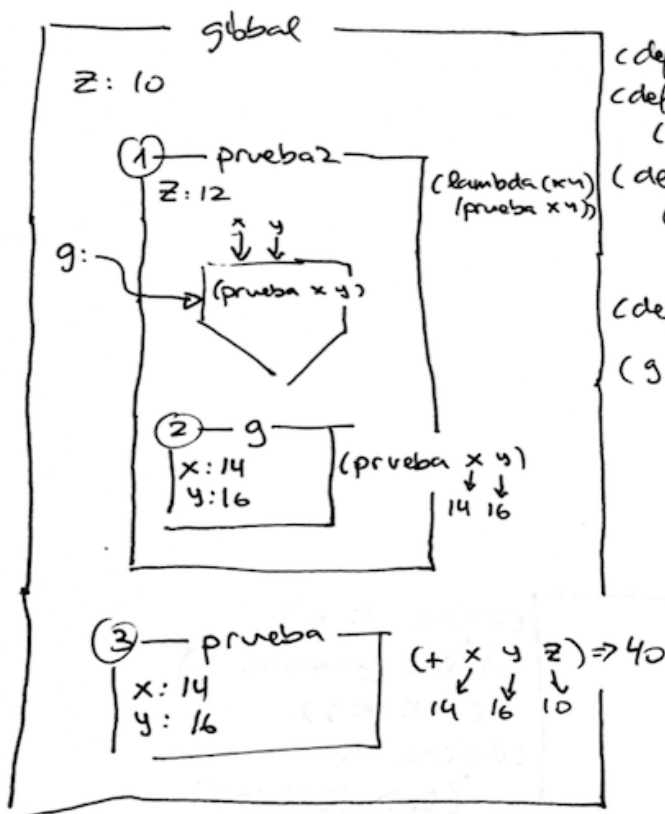 global
z: 10
(def
(def
(
① prueba2
z: 12
(lambda (x y)
(prueba x y))
(de
(
x y
g:
(prueba x y)
(de
(g
② g
x: 14
y: 16
(prueba x y)
14 16
③ prueba
x: 14
y: 16
(+ x y z) ⇒ 40
14 16 10